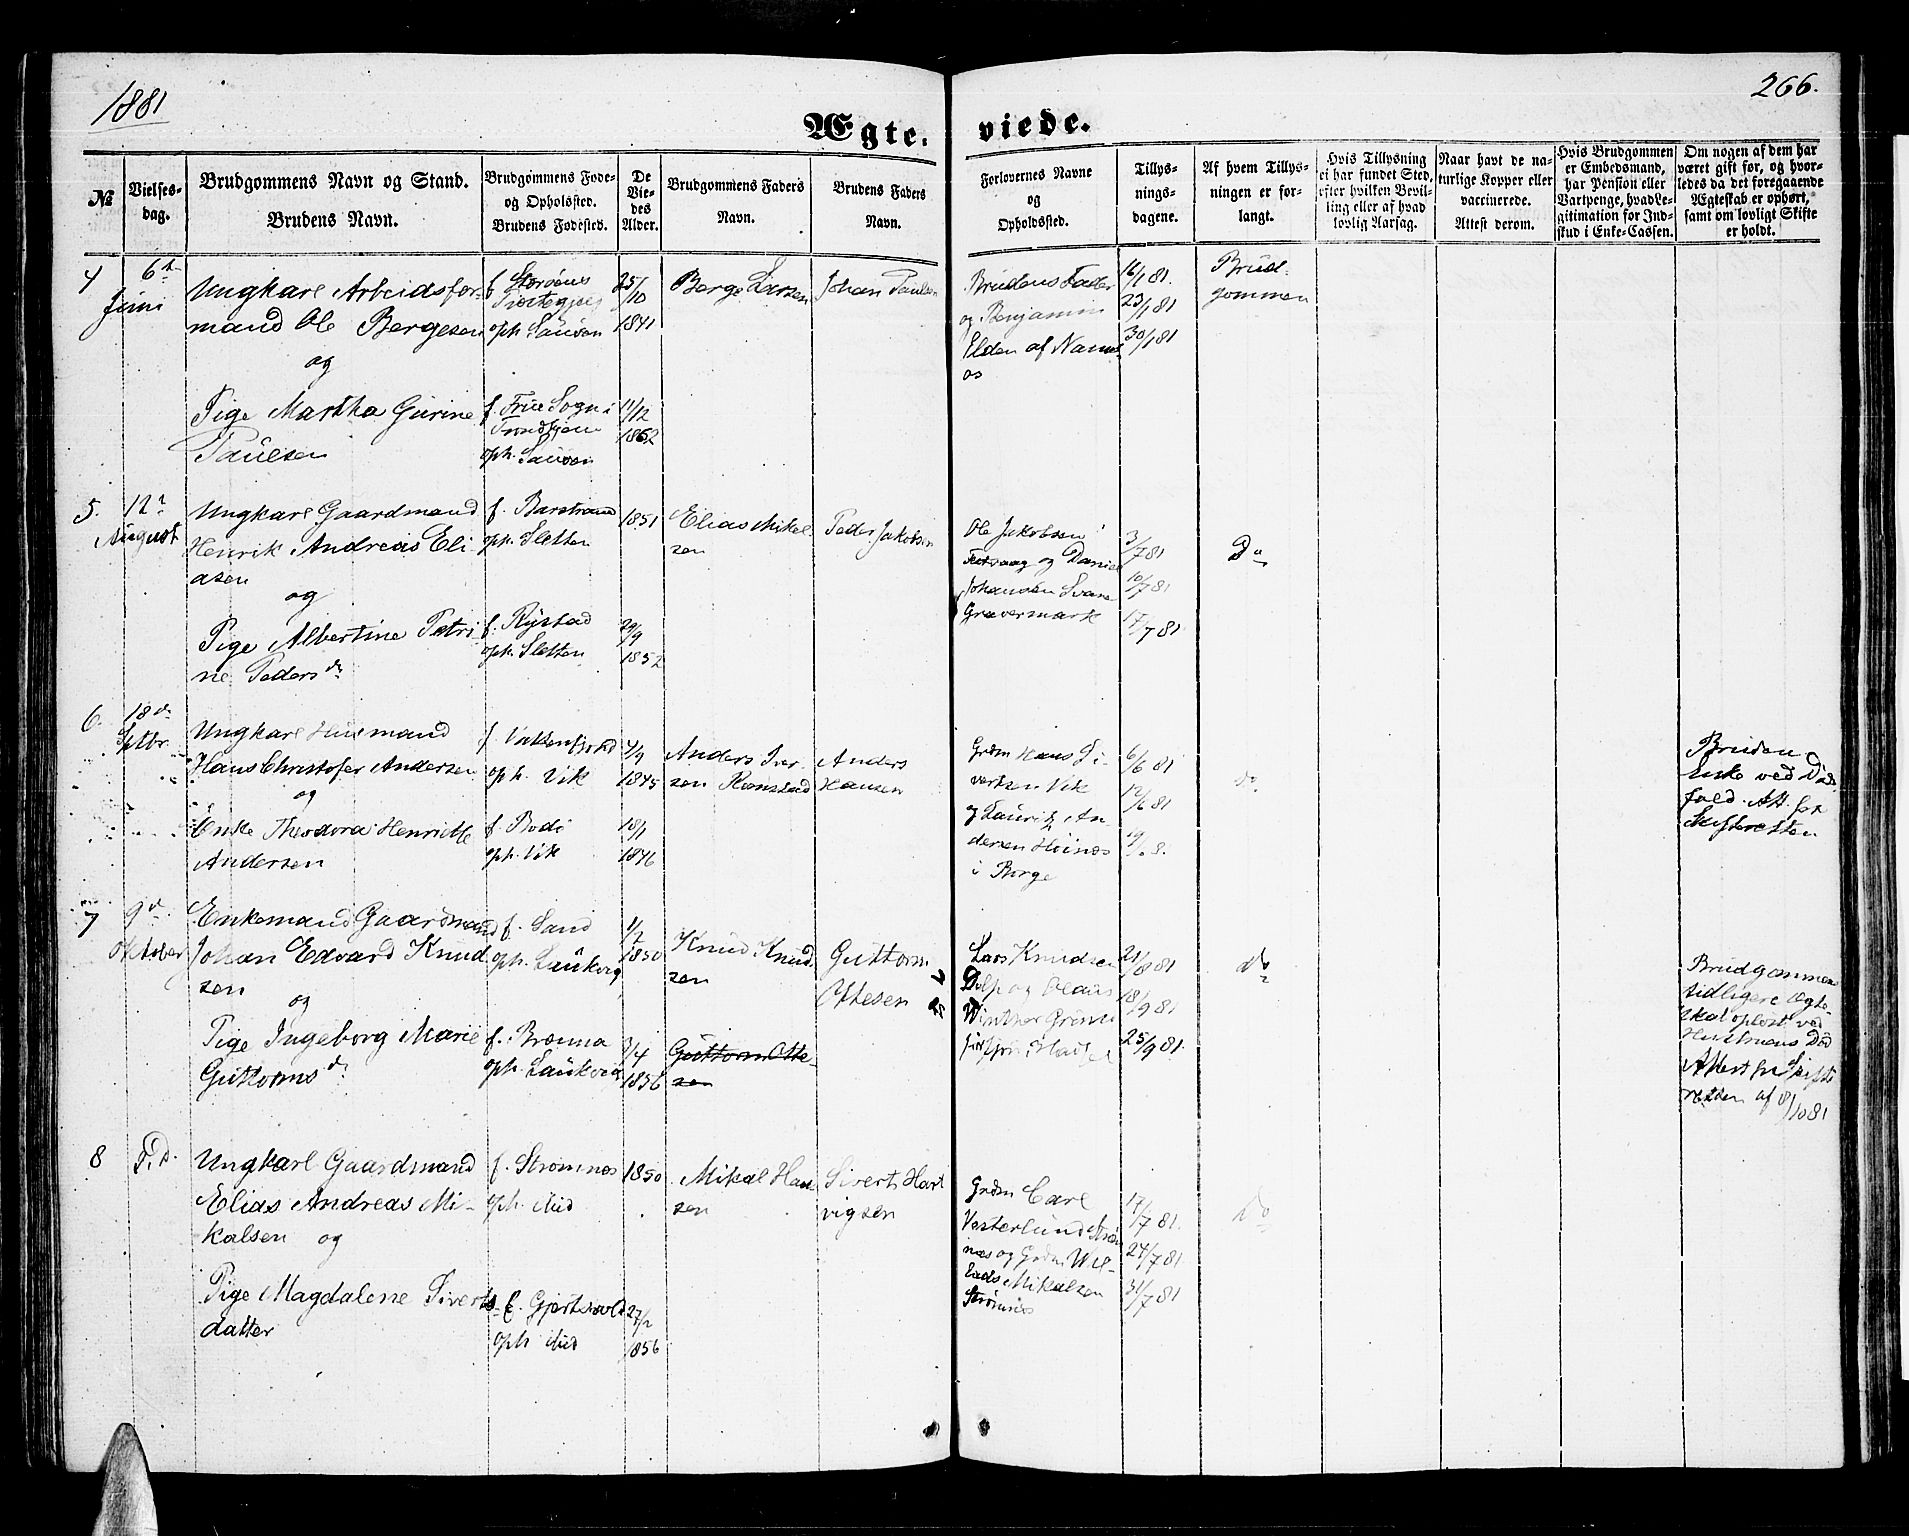 1881
266.
Ægte. viede.
№
Vielses-
dag.
Brudgommens Navn og Stand.
Brudens Navn.
Brudgommens Føde-
og Opholdssted.
Brudens Fødested.
De
Vie-
des
Alder.
Brudgommens Faders
Navn.
Brudens Faders
Navn.
Forlovernes Navne
og
Opholdssted.
Tillys-
nings-
dagene.
Af hvem Tillys-
ningen er for-
langt.
Hvis Tillysning
ei har fundet Sted,
efter hvilken Bevil-
ling eller af hvad
lovlig Aarsag.
Naar havt de na-
turlige Kopper eller
vaccinerede.
Attest derom.
Hvis Brudgommen
er Embedsmand,
har Pension eller
Vartpenge, hvad Le-
gitimation for Ind-
skud i Enke-Cassen.
Om nogen af dem har
været gift før, og hvor-
ledes da det foregaaende
Ægteskab er ophørt,
samt om lovligt Skifte
er holdt.
4
6te
Juni
Ungkarl Arbeidsfor-
mand Ole Bergesen
og
Pige Martha Gurine
Paulsen
f.
oph.
f. Frue Sogn i
Trondhjem
oph.
25/10
1841
11/12
1862
Berge Larsen
Johan Paulsen
Brudens Fader
og Benjamin
Elden af Nams
os
16/1 81.
23/1 81
30/1 81
Brud-
gommen
5.
12te
August
Ungkarl Gaardmand
Henrik Andreas Eli
asen
og
Pige Albertine Petri
ne Pedersdr
f. Barstrand
oph. Sletten
f. Rystad
oph. Sletten
1851
29/9
1852
Elias Mikel
sen
Peder Jakobsen
Ole Jakobsen
og Daniel
Johansen Svare
Grævermark
3/7 81
10/7 81
17/7 81
Do
6.
18de
Septbr.
Ungkarl Husmand
Hans Christofer Andersen
og
Enke Theodora Henriette
Andersen
f.
oph. Vik
f. Bodø
oph. Vik
4/9
1845
18/1
1846
Anders Iver
sen Ramstad
Anders
Hansen
Grdm Hans Si-
vertsen Vik
og Lauritz An
dersen Høinæs
i Borge
6/6 81
12/6 81
do
Bruden
Enke ved Døds
fald. Att. fra
Skifteretten
7
9de
Oktober
Enkemand Gaardmand
Johan Edvard Knud
sen
og
Pige Ingeborg Marie
Guttormsdr
f. Sand
oph. Laukvig
f. Brenna
oph. Laukvig
1/2
1850
3/4
1856
Knud Knud
sen
Guttorm Otte-
sen
Guttorm
Ottesen
Lars Knudsen
Dolp og Olaus
Winther
21/8 81
18/9 81
25/9 81.
do
Brudgommens
tidligere Ægte
skab opløst ved
Hustruens Død
Attest fra Skifte
retten af 8/10 81
8
S.D.
Ungkarl Gaardmand
Elias Andreas Mi-
kalsen og
Pige Magdalene Siverts
datter
f. Strømnæs
oph.
f. Gjertsvold
oph
1850
27/2
1856
Mikal Han
sen
Sivert Hart
vigsen
Grdm Carl
Vesterlund Strøm
næs og Grdm Wil-
lads Mikalsen
Strømnæs
17/7 81.
24/7 81
31/7 81
Do